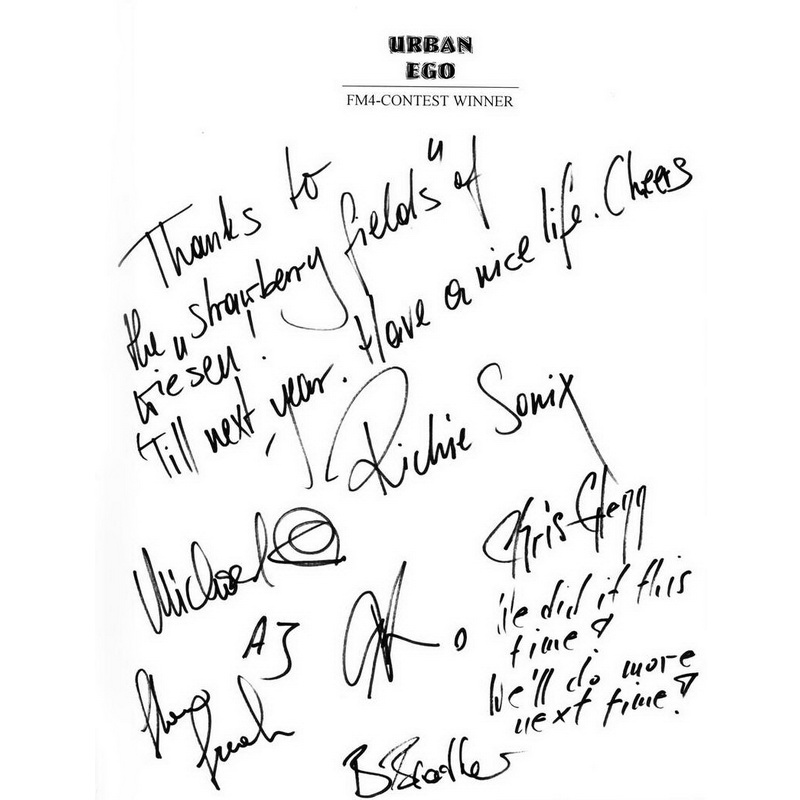 URBAN
EGO
FM4-CONTEST WINNER
Thanks to
the „strawberry fields" of
Wiesen!
'Till next year. Have a nice life. Cheers
Richie Sonix
Michael
Chris
We did it this
time!
We'll do more
next time!
AJ
B. Brother